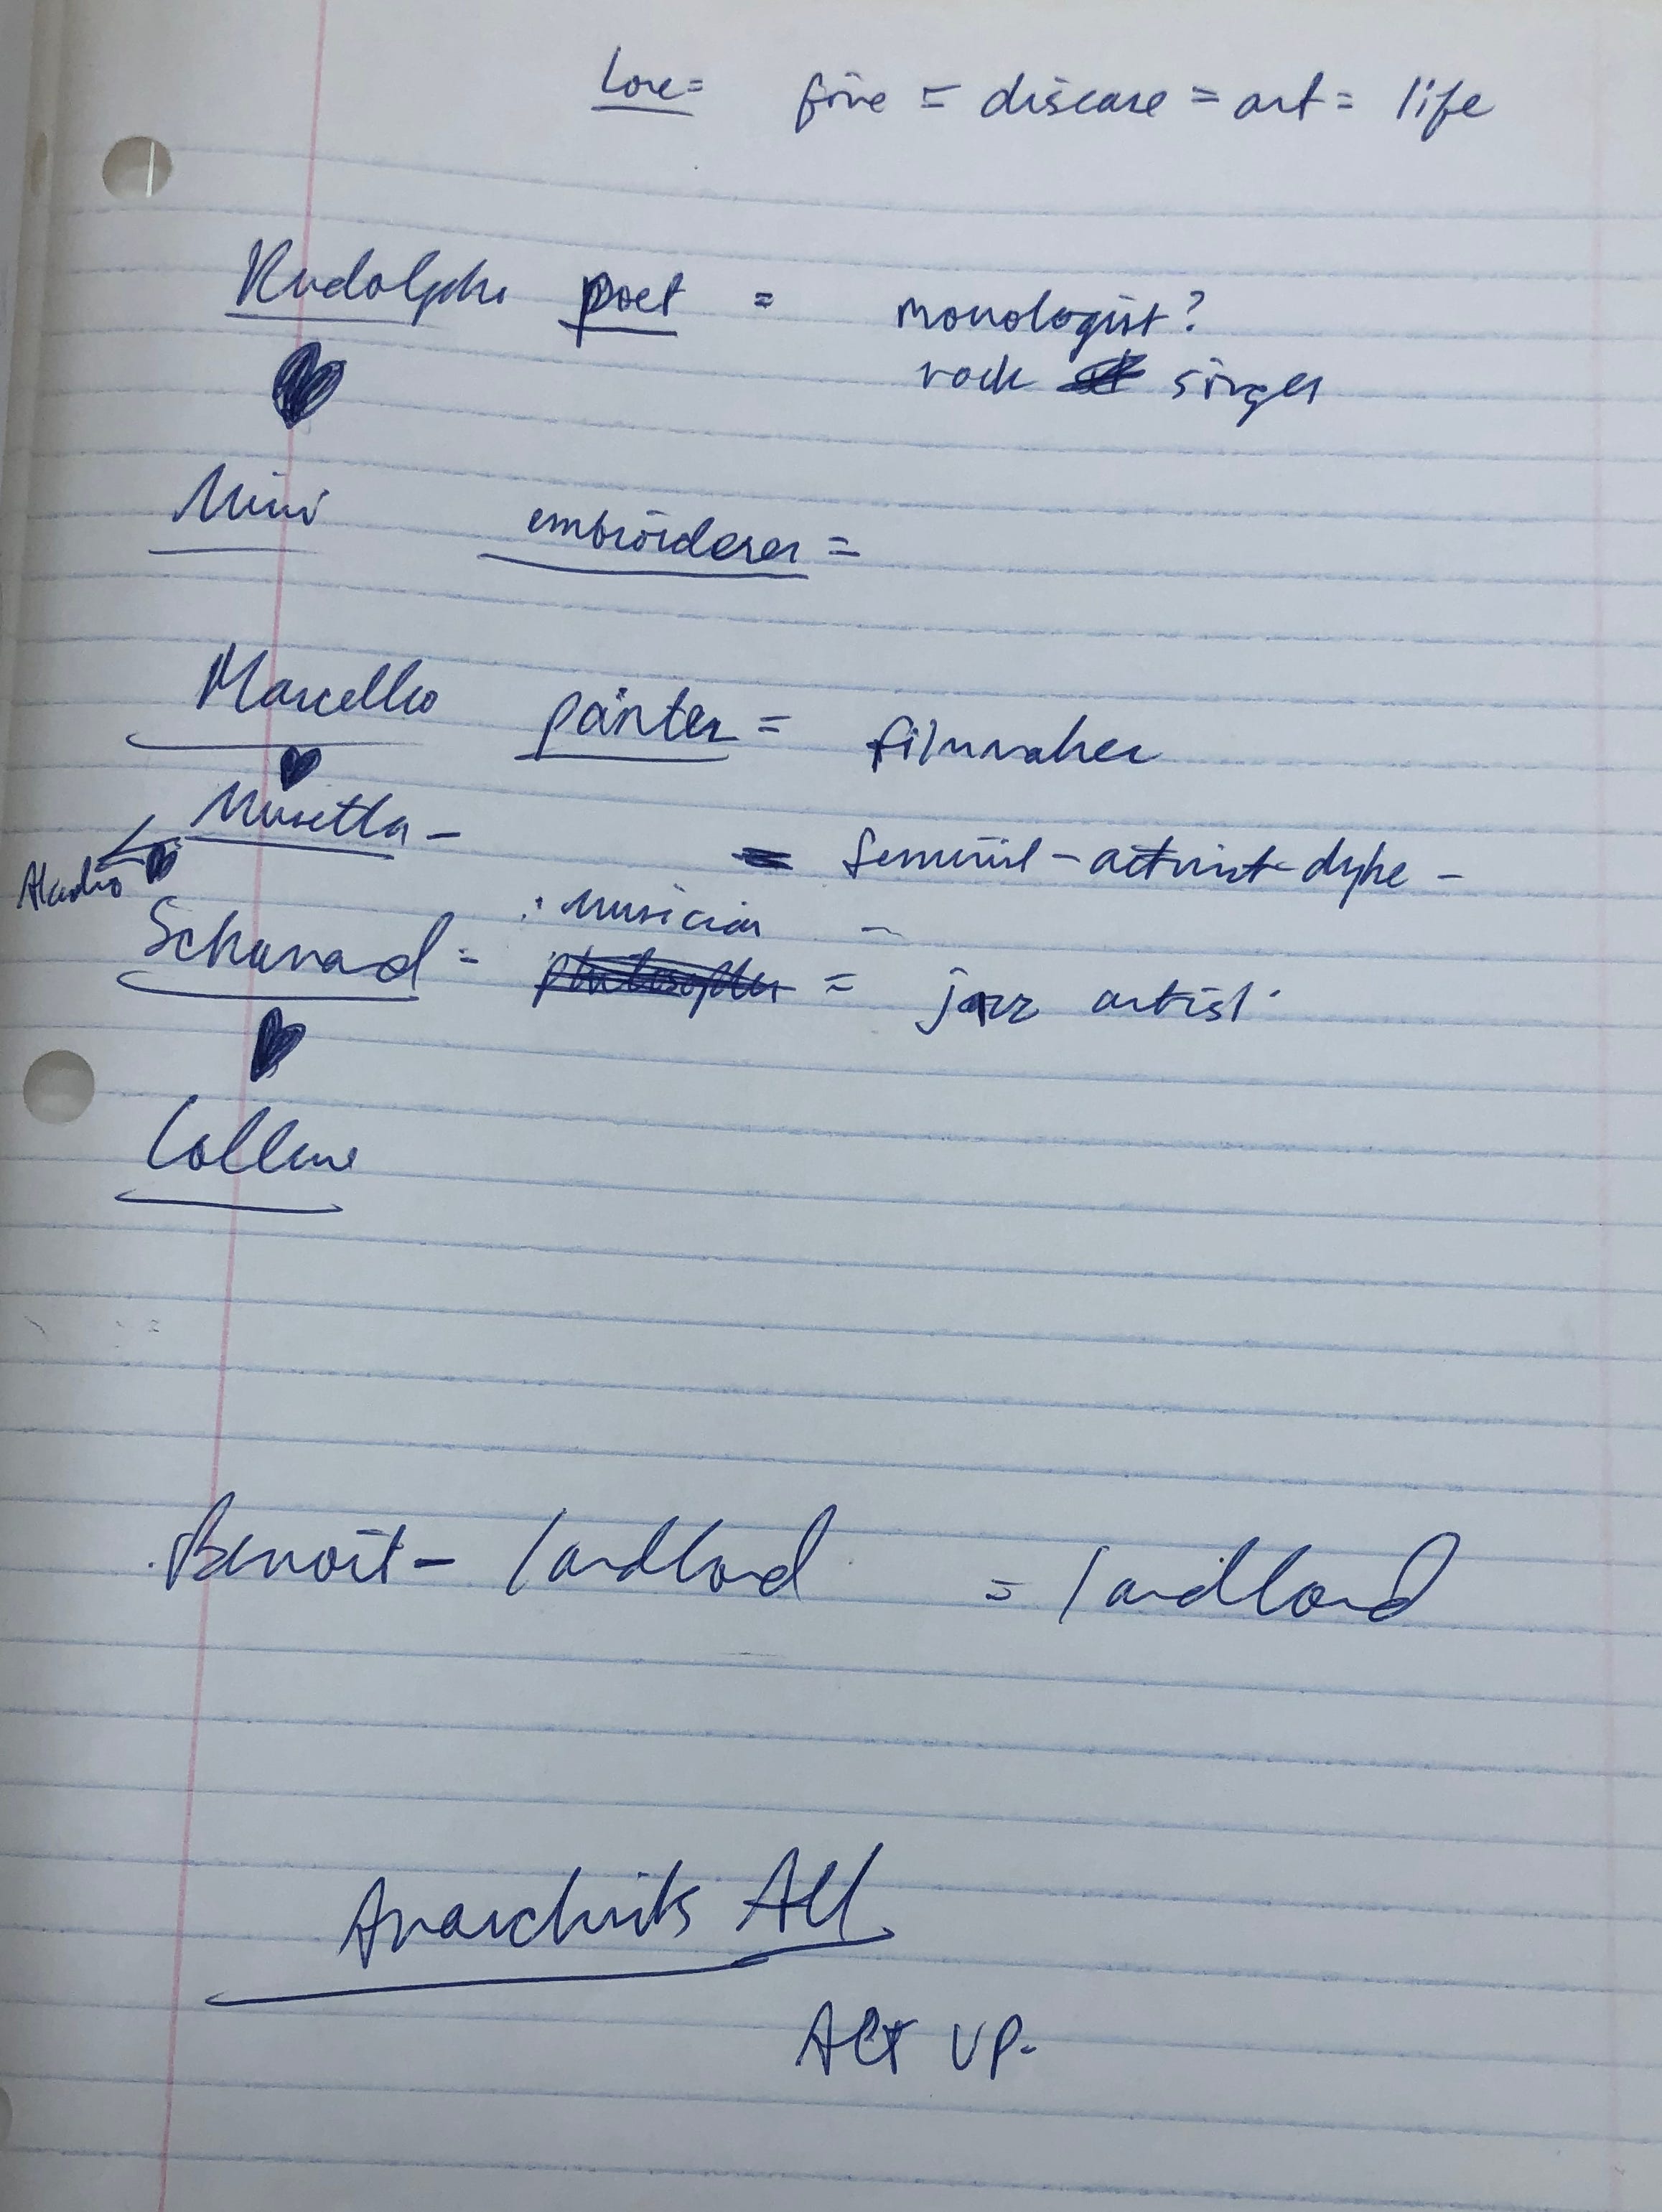 Love = fire = disease = art = life
Rudolpho poet = monologist?
rock singer
Mimi embroiderer =
Marcello painter = filmmaker
Musetta -
= feminist - activist dyke -
musician -
Schunard = philosopher = jazz artist
Colline
Benoit - landlord = landlord
Anarchists All
ACT UP.